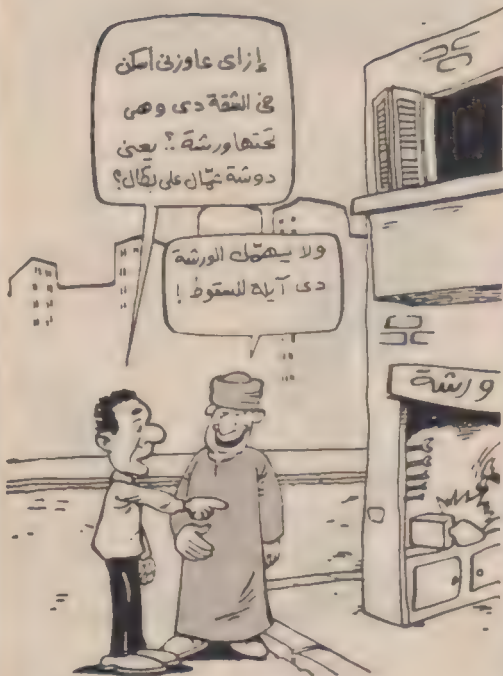 إزاى عاوزنى أسكن
فى الشقة دى وهى
تحتها ورشة ؟ يعنى
دوشة عمّال على بطّال ؟
ولا يهمّك الورشة
دى آيلة للسقوط !
ورشة